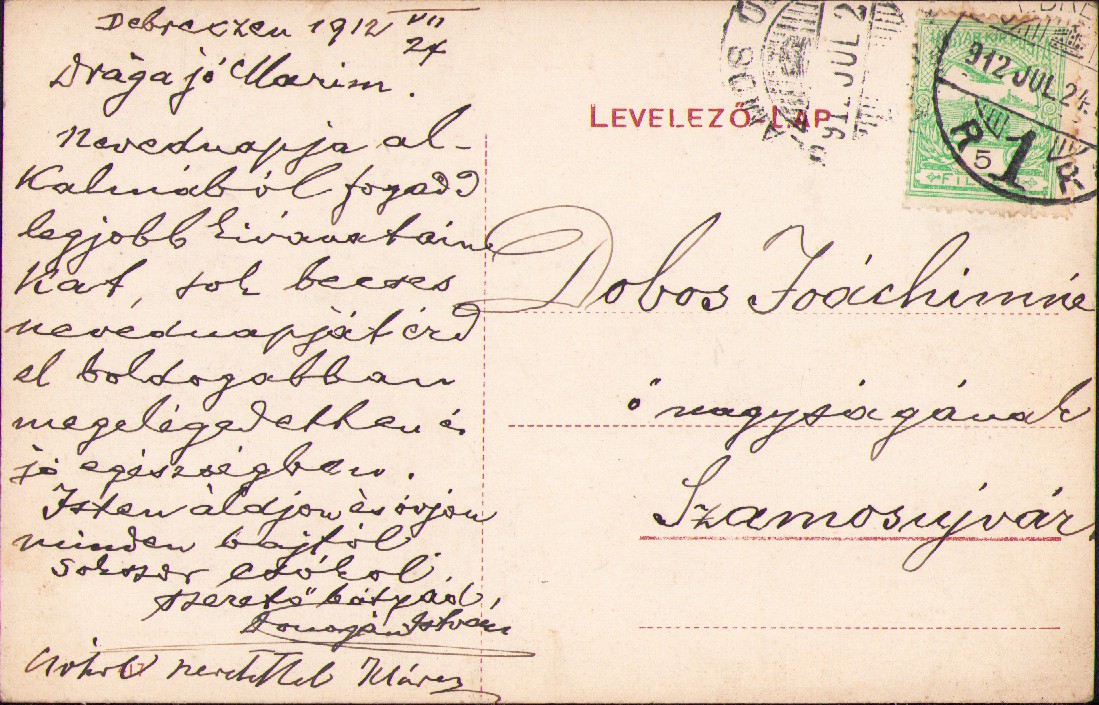 Debreczen 1912 VII
24
Drága jó Marim.
Nevednapja al-
kalmából fogadd
legjobb kivánatain
kat, sok becses
nevednapját érd
el boldogabban
megelégedetten és
jó egészségben.
Isten áldjon és óvjon
minden bajtól
sokszor csókol
szerető bátyád
István
szeretettel
LEVELEZŐ LAP
912 JUL 2
MAGYAR KIR. POSTA
912 JUL 24
5
1
FIL
Dobos Joáchimné
ő nagyságának
Szamosújvár